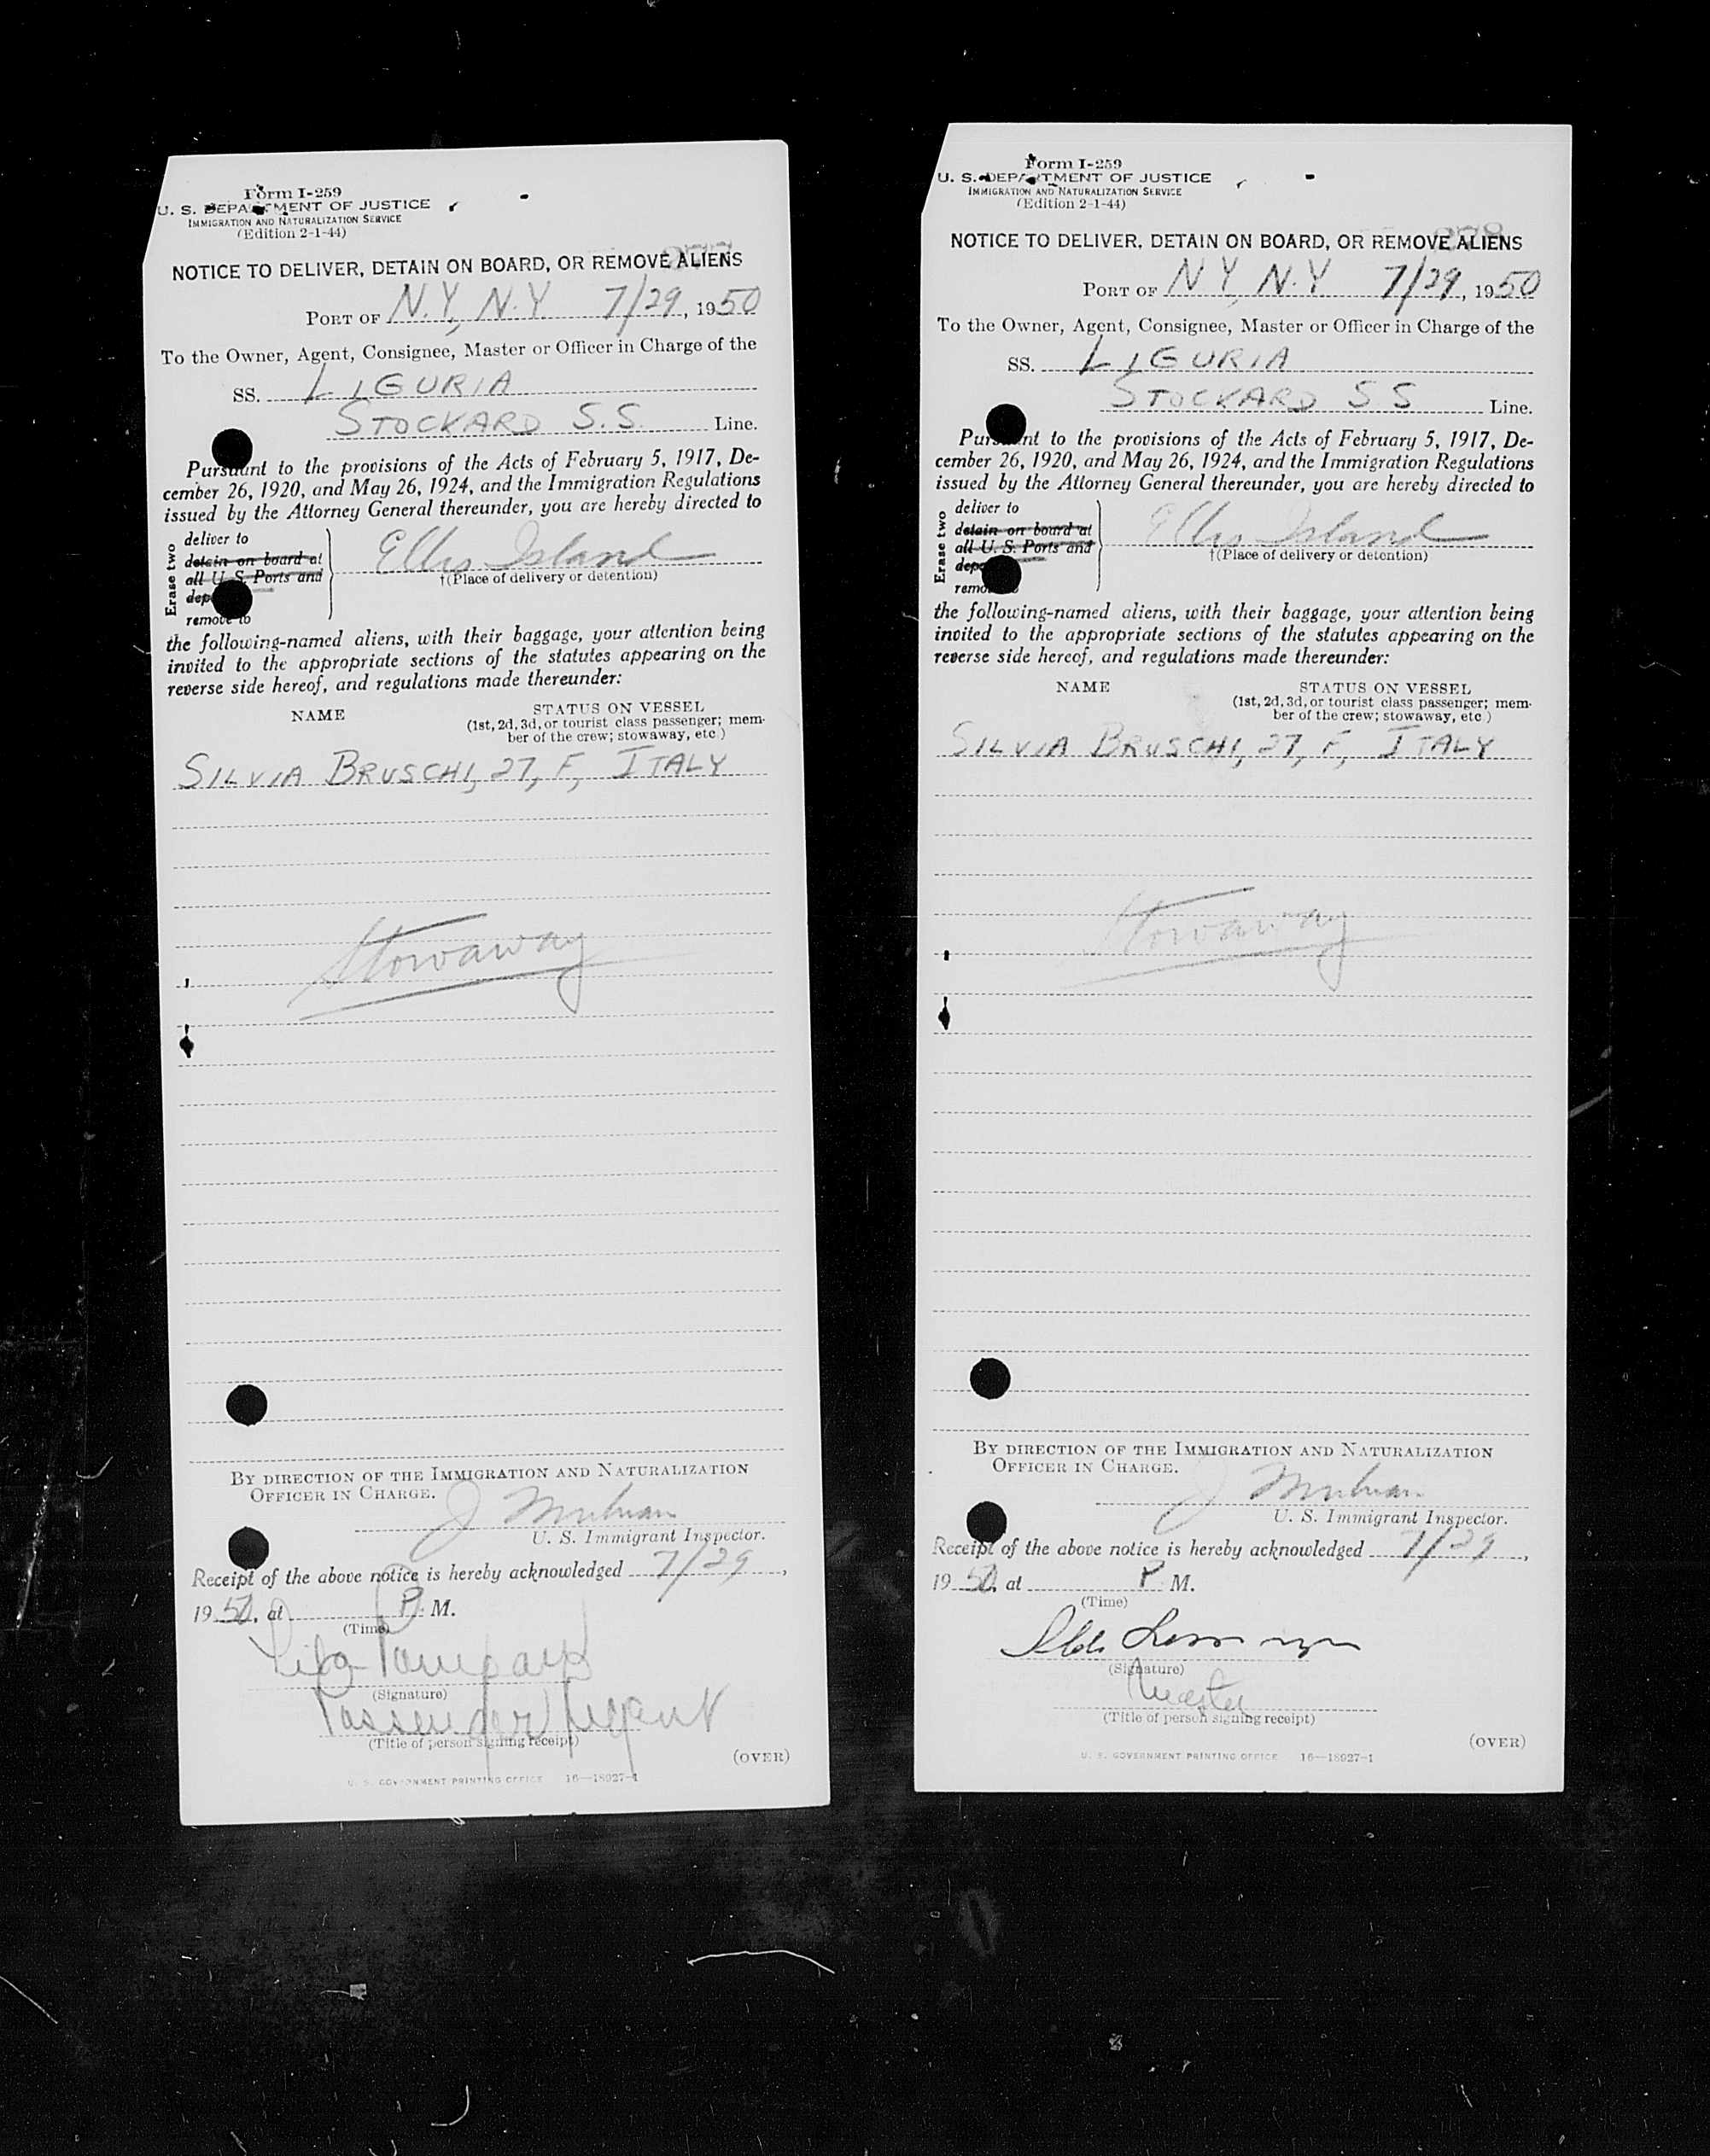 Form I-259
U. S. DEPARTMENT OF JUSTICE
IMMIGRATION AND NATURALIZATION SERVICE
(Edition 2-1-44)
277
NOTICE TO DELIVER, DETAIN ON BOARD, OR REMOVE ALIENS
PORT OF N.Y., N.Y. 7/29, 1950
To the Owner, Agent, Consignee, Master or Officer in Charge of the
SS. LIGURIA
STOCKARD S.S. Line.
Pursuant to the provisions of the Acts of February 5, 1917, De-
cember 26, 1920, and May 26, 1924, and the Immigration Regulations
issued by the Attorney General thereunder, you are hereby directed to
Erase two
deliver to
detain on board at
all U. S. Ports and
dep
remove to
Ellis Island
†(Place of delivery or detention)
the following-named aliens, with their baggage, your attention being
invited to the appropriate sections of the statutes appearing on the
reverse side hereof, and regulations made thereunder:
NAME STATUS ON VESSEL
(1st, 2d, 3d, or tourist class passenger; mem-
ber of the crew; stowaway, etc.)
SILVIA BRUSCHI, 27, F, ITALY
Stowaway
BY DIRECTION OF THE IMMIGRATION AND NATURALIZATION
OFFICER IN CHARGE.
J
U. S. Immigrant Inspector.
Receipt of the above notice is hereby acknowledged 7/29,
1950, at P. M.
(Time)
(Signature)
Passenger Agent
(Title of person signing receipt)
(OVER)
U. S. GOVERNMENT PRINTING OFFICE 16—18927-1
Form I-259
U. S. DEPARTMENT OF JUSTICE
IMMIGRATION AND NATURALIZATION SERVICE
(Edition 2-1-44)
278
NOTICE TO DELIVER, DETAIN ON BOARD, OR REMOVE ALIENS
PORT OF N Y, N.Y 7/29, 1950
To the Owner, Agent, Consignee, Master or Officer in Charge of the
SS. LIGURIA
STOCKARD S S Line.
Pursuant to the provisions of the Acts of February 5, 1917, De-
cember 26, 1920, and May 26, 1924, and the Immigration Regulations
issued by the Attorney General thereunder, you are hereby directed to
Erase two
deliver to
detain on board at
all U. S. Ports and
dep
remove to
Ellis Island
†(Place of delivery or detention)
the following-named aliens, with their baggage, your attention being
invited to the appropriate sections of the statutes appearing on the
reverse side hereof, and regulations made thereunder:
NAME STATUS ON VESSEL
(1st, 2d, 3d, or tourist class passenger; mem-
ber of the crew; stowaway, etc.)
SILVIA BRUSCHI, 27, F, ITALY
Stowaway
BY DIRECTION OF THE IMMIGRATION AND NATURALIZATION
OFFICER IN CHARGE.
J
U. S. Immigrant Inspector.
Receipt of the above notice is hereby acknowledged 7/29,
1950, at P. M.
(Time)
(Signature)
Master
(Title of person signing receipt)
(OVER)
U. S. GOVERNMENT PRINTING OFFICE 16—18927-1